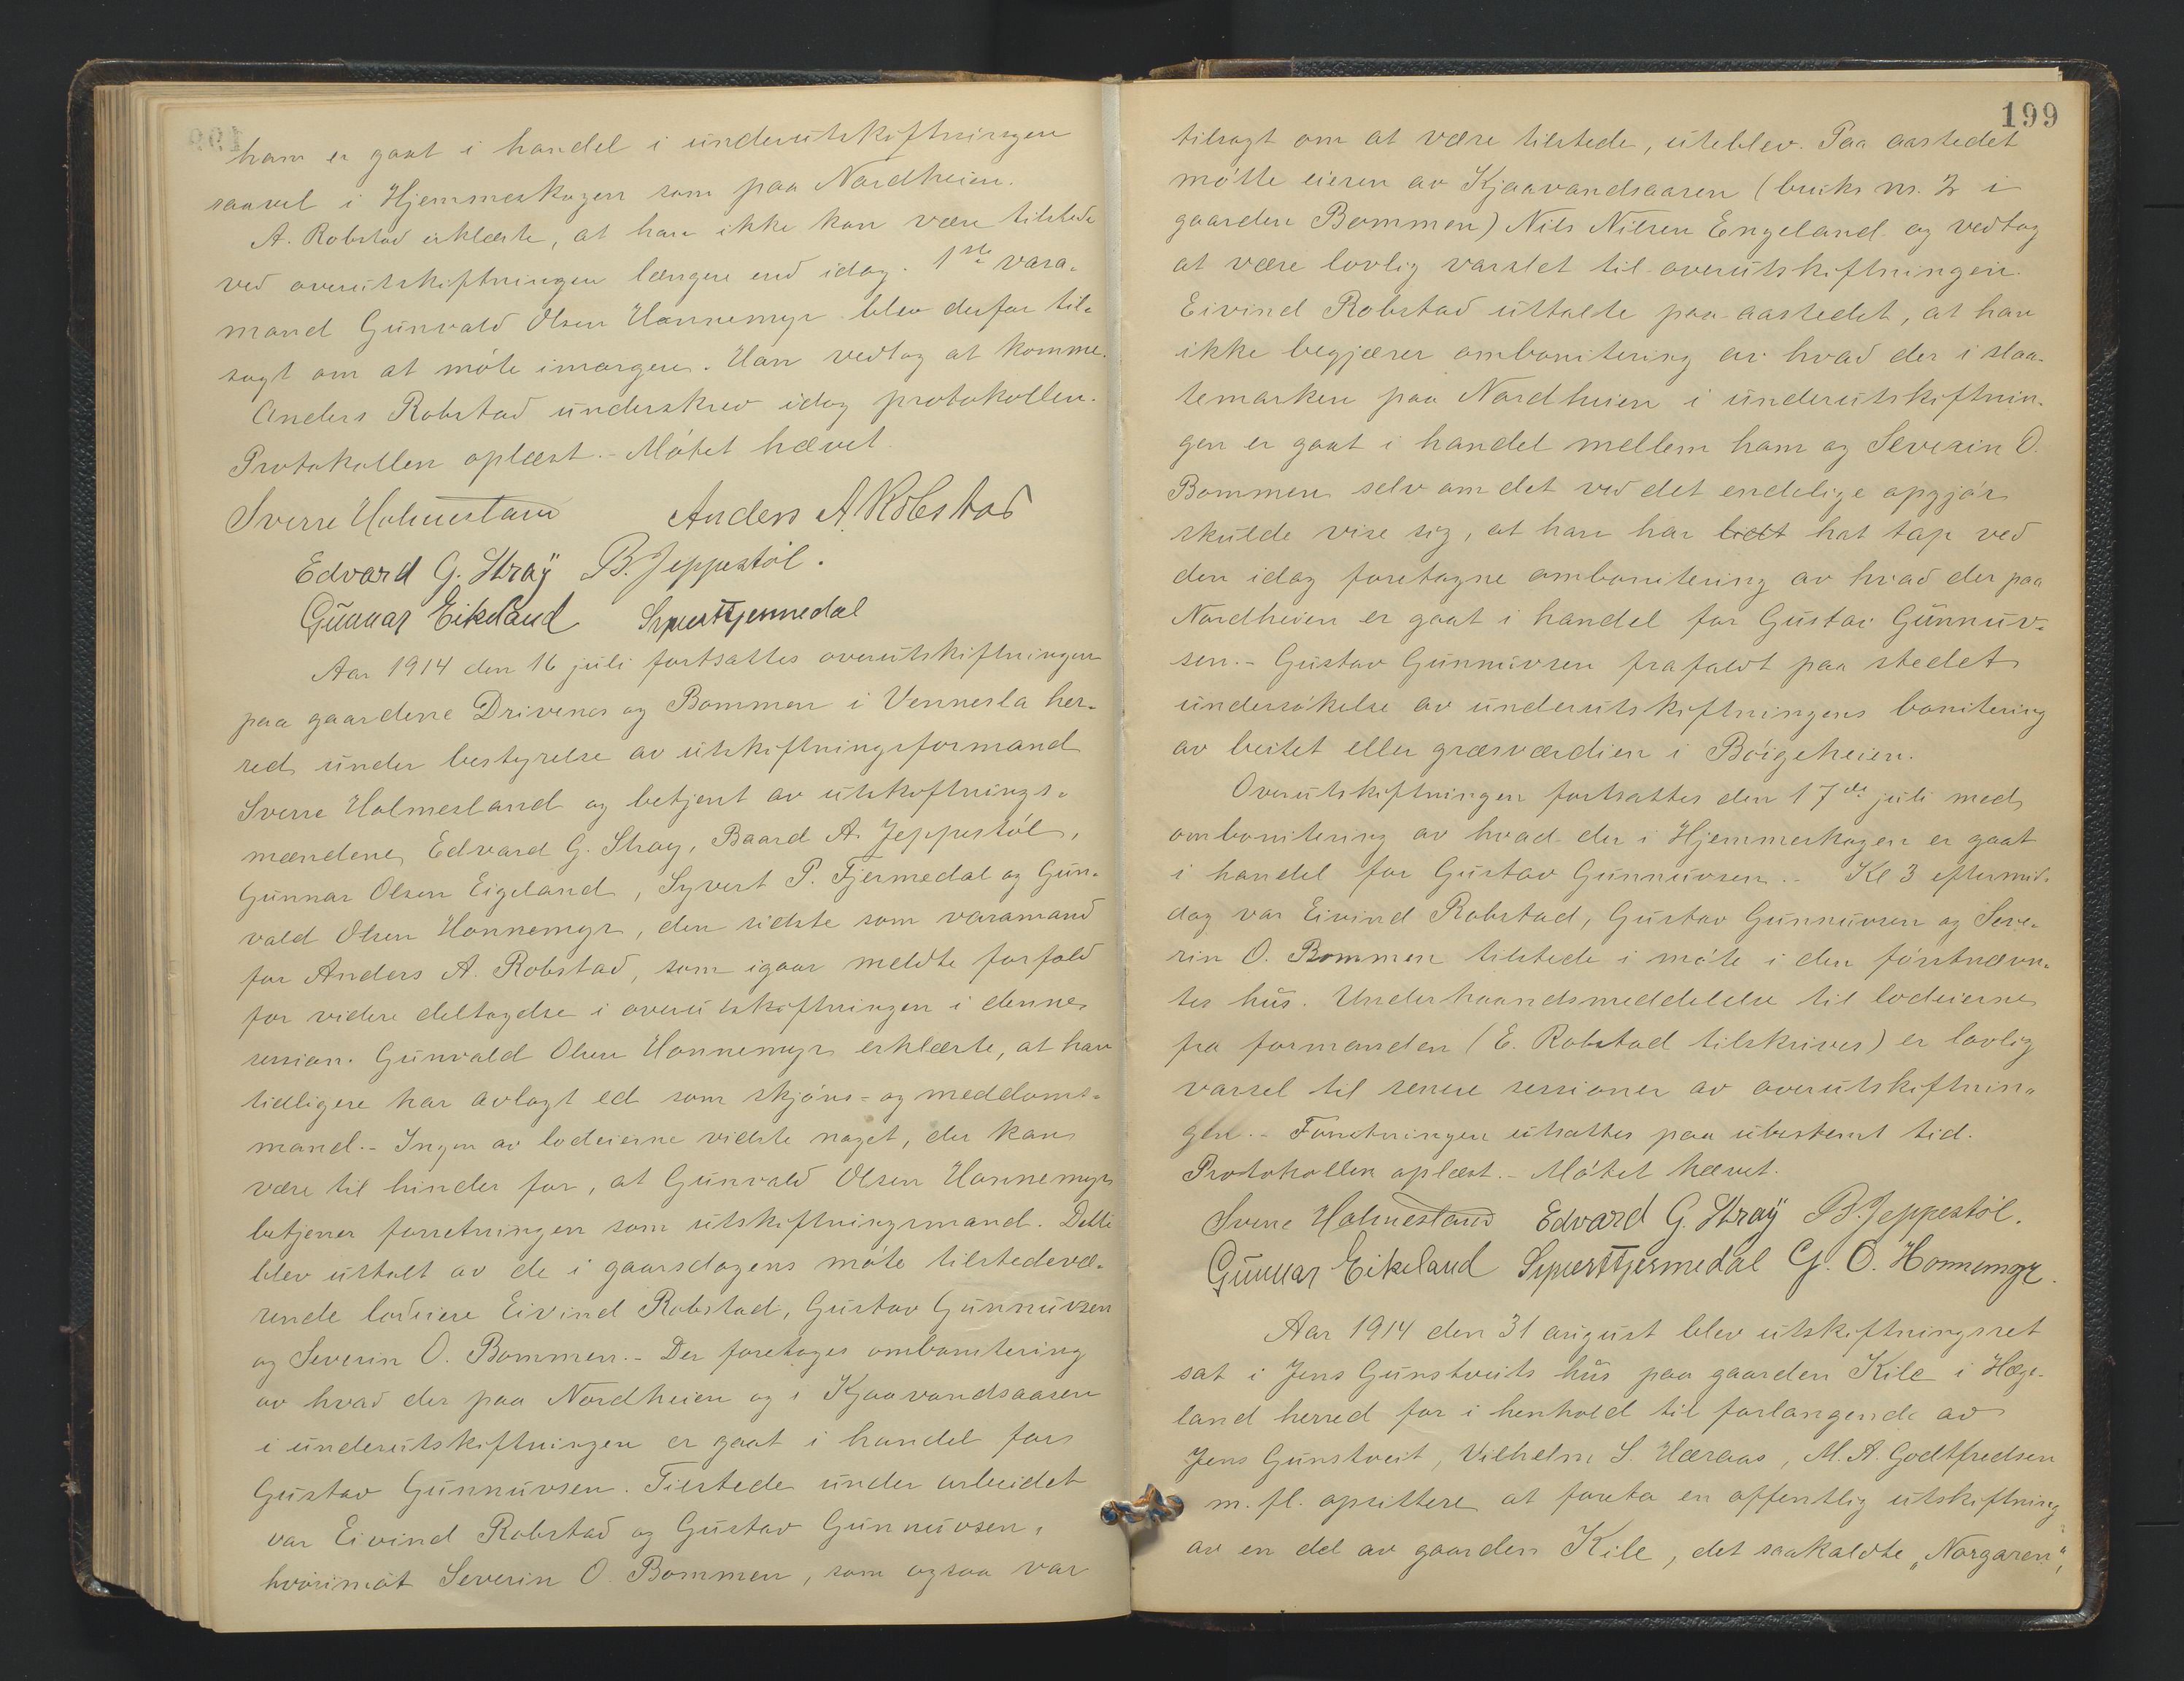 ham er gaat i handel i underutskiftningen
saavel i Hjemmeskogen som paa Nordheien.
A. Robstad erklærte, at han ikke kan være tilstede
ved overutskiftningen længere end idag. 1ste vara-
mand Gunvald Olsen Honnemyr blev derfor til-
sagt om at møte imorgen. Han vedtog at komme.
Anders Robstad underskrev idag protokollen.
Protokollen oplæst. - Møtet hævet.
Sverre Holmesland Anders A Robstad
Edvard G. Stray B. Jeppestøl.
Gunnar Eikeland Syvert Tjermedal
Aar 1914 den 16 juli fortsattes overutskiftningen
paa gaardene Drivenes og Bommen i Vennesla her-
red under bestyrelse av utskiftningsformand
Sverre Holmesland og betjent av utskiftnings-
mændene Edvard G. Stray, Baard A. Jeppestøl,
Gunnar Olsen Eigeland, Syvert P. Tjermedal og Gun-
vald Olsen Honnemyr, den sidste som varamand
for Anders A. Robstad, som igaar meldte forfald
for videre deltagelse i overutskiftningen i denne
session. Gunvald Olsen Honnemyr erklærte, at han
tidligere har avlagt ed som skjøns- og meddoms-
mand. - Ingen av lodeierne vidste noget, der kan
være til hinder for, at Gunvald Olsen Honnemyr
betjener forretningen som utskiftningsmand. Dette
blev uttalt av de i gaarsdagens møte tilstedevæ-
rende lodeiere Eivind Robstad, Gustav Gunnuvsen
og Severin O. Bommen. - Der foretages ombonitering
av hvad der paa Nordheien og i Kjaavandsaasen
i underutskiftningen er gaat i handel for
Gustav Gunnuvsen. Tilstede under arbeidet
var Eivind Robstad og Gustav Gunnuvsen,
hvorimot Severin O. Bommen, som ogsaa var
199
tilsagt om at være tilstede, uteblev. Paa aastedet
møtte eieren av Kjaavandsaasen (bruks nr. 2 i
gaarden Bommen) Nils Nilsen Engeland og vedtog
at være lovlig varslet til overutskiftningen.
Eivind Robstad uttalte paa aastedet, at han
ikke begjærer ombonitering av hvad der i slaa-
temarken paa Nordheien i underutskiftnin-
gen er gaat i handel mellem ham og Severin O.
Bommen selv om det ved det endelige opgjør
skulde vise sig, at han har lidt hat tap ved
den idag foretagne ombonitering av hvad der paa
Nordheien er gaat i handel for Gustav Gunnuv-
sen. - Gustav Gunnuvsen frafaldt paa stedet
undersøkelse av underutskiftningens bonitering
av beitet eller græsværdien i Bøigeheien.
Overutskiftningen fortsattes den 17de juli med
ombonitering av hvad der i Hjemmeskogen er gaat
i handel for Gustav Gunnuvsen. - Kl 3 eftermid-
dag var Eivind Robstad, Gustav Gunnuvsen og Seve-
rin O. Bommen tilstede i møte i den førstnævn-
tes hus. Underhaandsmeddelelse til lodeierne
fra formanden (E. Robstad tilskrives) er lovlig
varsel til senere sessioner av overutskiftnin-
gen. - Forretningen utsattes paa ubestemt tid.
Protokollen oplæst. - Møtet hævet.
Sverre Holmesland Edvard G. Stray B. Jeppestøl.
Gunnar Eikeland Syvert Tjermedal G. O. Honnemyr.
Aar 1914 den 31 august blev utskiftningsret
sat i Jens Gunstveits hus paa gaarden Kile i Hæge-
land herred for i henhold til forlangende av
Jens Gunstveit, Vilhelm S. Høraas, M. A. Godtfredsen
m. fl. opsittere at foreta en offentlig utskiftning
av en del av gaarden Kile, det saakaldte "Norgaren",